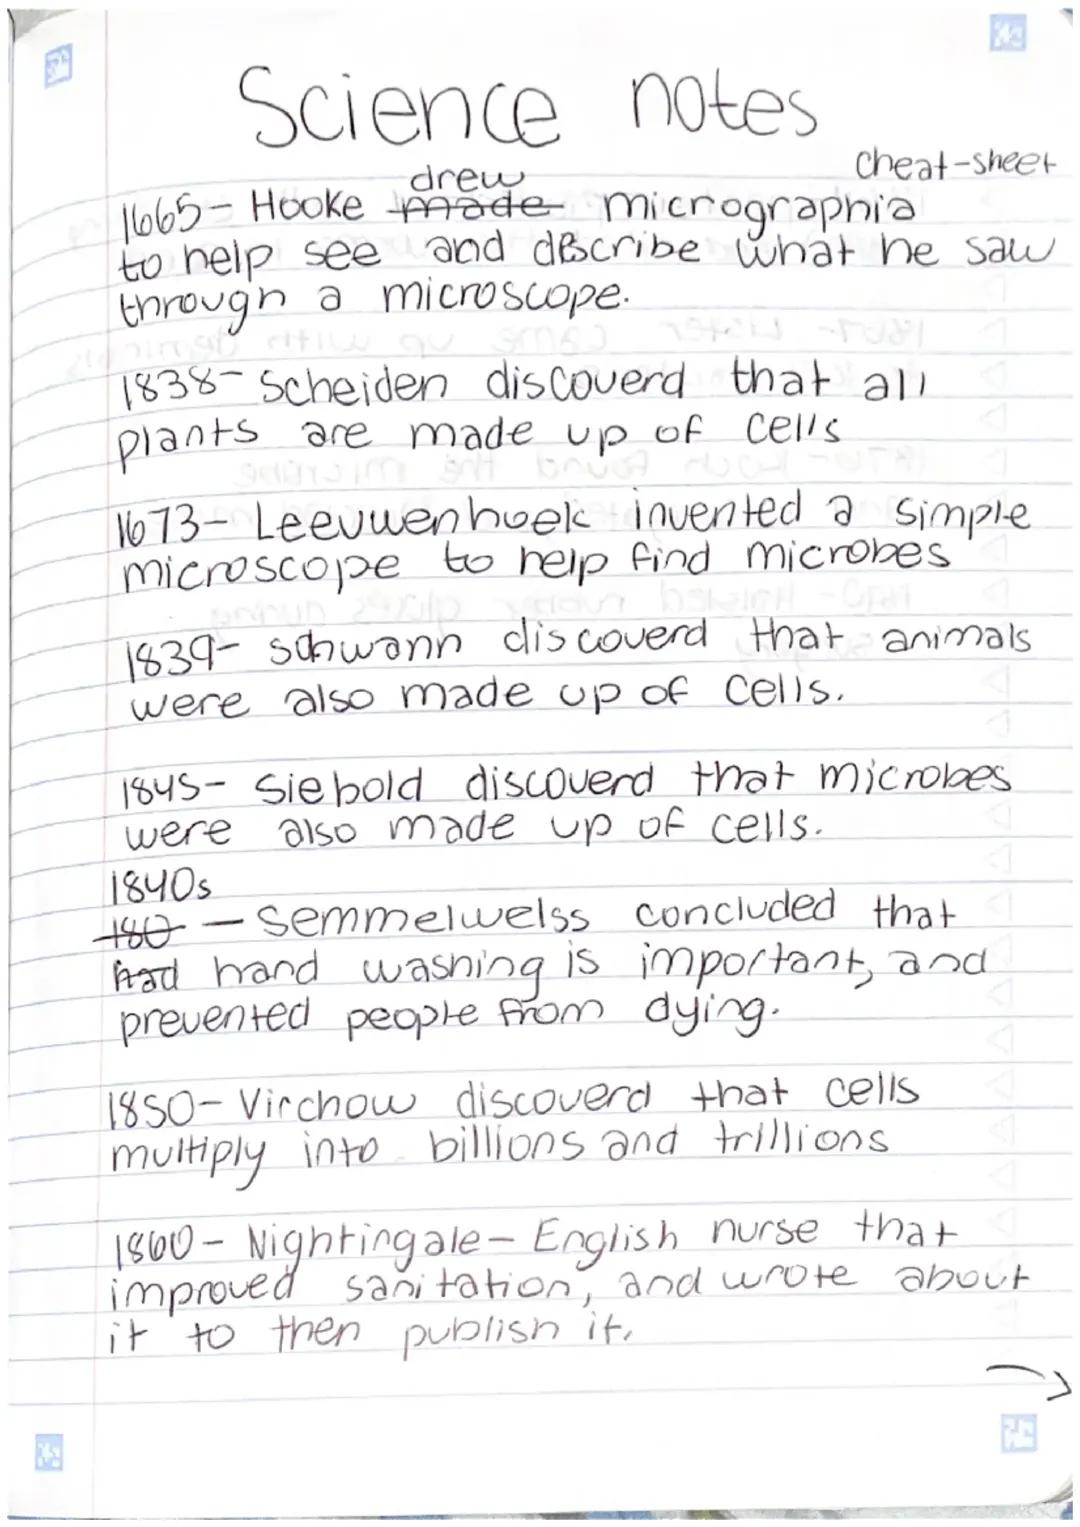 Science notes
cheat-sheet
drew
1665- Hooke made micrographia
to help see and describe what he saw
through a microscope.
1838- Scheiden discoverd that all
plants are made up of cells
1673- Leeuwenhoek invented a simple
microscope to help find microbes
1839- schwann discoverd that animals
were also made up of cells.
1845- Siebold discoverd that microbes
were also made up of cells.
1840s
180 - Semmelwelss concluded that
had hand washing is important, and
prevented people from dying.
1850- Virchow discoverd that cells
multiply into billions and trillions
1860- Nightingale- English nurse that
improved sanitation, and wrote about
it to then publish it.